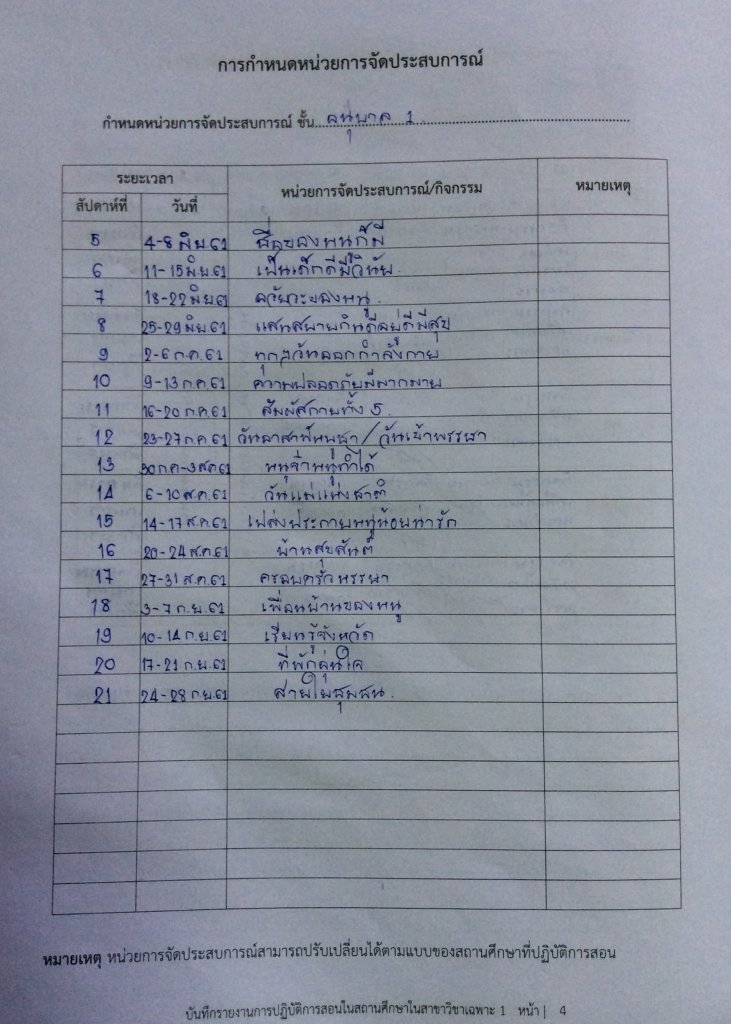 การกำหนดหน่วยการจัดประสบการณ์
กำหนดหน่วยการจัดประสบการณ์ ชั้น อนุบาล 1
ระยะเวลา หน่วยการจัดประสบการณ์/กิจกรรม หมายเหตุ
สัปดาห์ที่ วันที่
5 4-8 มิ.ย. 61 ชื่อของหนูก็มี
6 11-15 มิ.ย. 61 เป็นเด็กดีมีวินัย
7 18-22 มิ.ย. 61 อวัยวะของหนู
8 25-29 มิ.ย. 61 แสนสบายกินดีอยู่ดีมีสุข
9 2-6 ก.ค. 61 ทุกๆวันออกกำลังกาย
10 9-13 ก.ค. 61 ความปลอดภัยมีมากมาย
11 16-20 ก.ค 61 สัมผัสกายทั้ง 5
12 23-27 ก.ค 61 วันอาสาฬหบูชา / วันเข้าพรรษา
13 30 ก.ค-3 ส.ค 61 หนูจ๋าหนูทำได้
14 6-10 ส.ค. 61 วันแม่แห่งชาติ
15 14-17 ส.ค 61 เปล่งประกายหนูน้อยน่ารัก
16 20-24 ส.ค. 61 บ้านสุขสันต์
17 27-31 ส.ค. 61 ครอบครัวหรรษา
18 3-7 ก.ย. 61 เพื่อนบ้านของหนู
19 10-14 ก.ย. 61 เรียนรู้จังหวัด
20 17-21 ก.ย. 61 ที่พักอุ่นใจ
21 24-28 ก.ย. 61 สายใยชุมชน
หมายเหตุ หน่วยการจัดประสบการณ์สามารถปรับเปลี่ยนได้ตามแบบของสถานศึกษาที่ปฏิบัติการสอน
บันทึกรายงานการปฏิบัติการสอนในสถานศึกษาในสาขาวิชาเฉพาะ 1 หน้า | 4